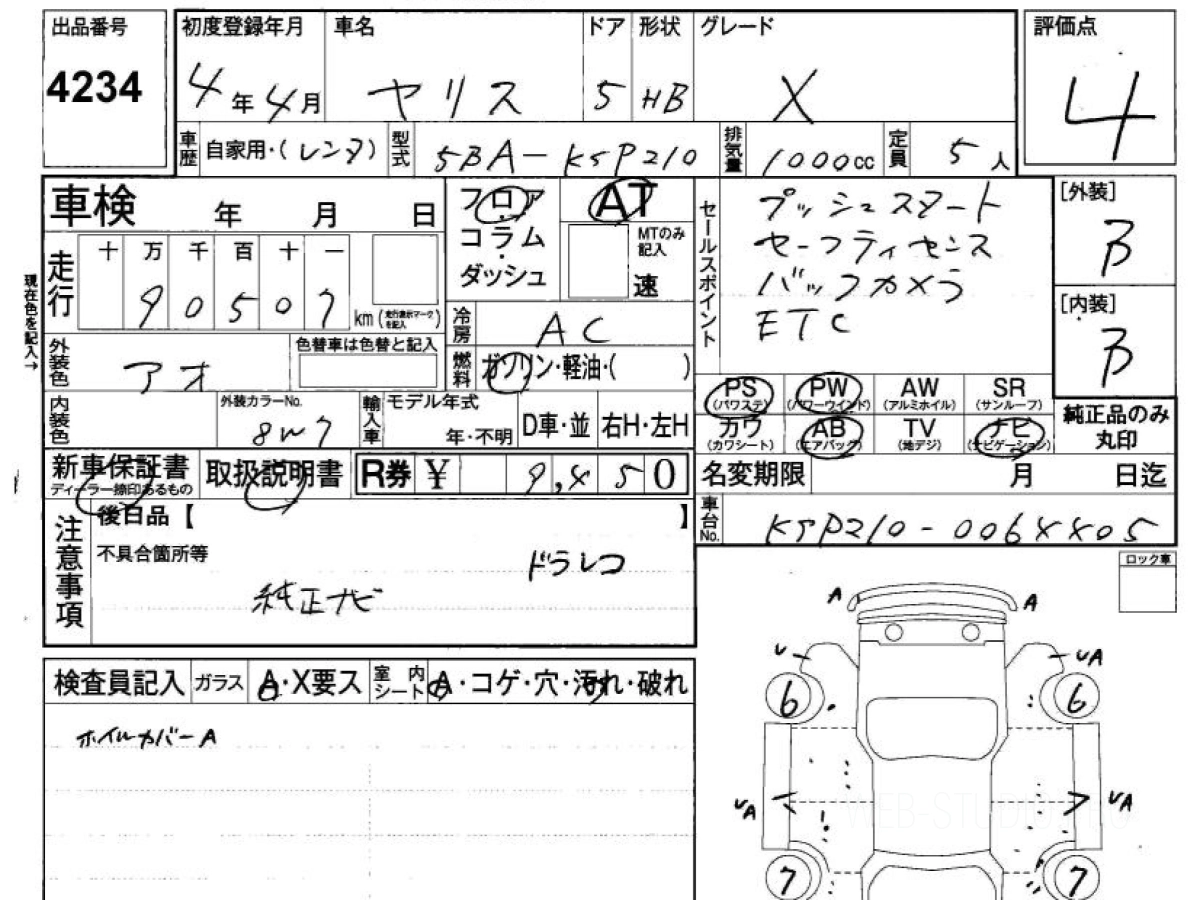 出品番号
4234
初度登録年月
4年4月
車名
ヤリス
ドア
5
形状
HB
グレード
X
評価点
4
車歴 自家用・(レンタ)
型式 5BA-KSP210
排気量 1000cc
定員 5人
車検 年 月 日
フロア
コラム
ダッシュ
AT
MTのみ記入
速
セールスポイント
プッシュスタート
セーフティセンス
バックカメラ
ETC
[外装]
B
[内装]
B
現在色を記入→
走行
十 万 千 百 十 一
9 0 5 0 7
km(走行表示マークを記入)
冷房 AC
外装色 アオ
色替車は色替と記入
燃料 ガソリン・軽油・( )
PS (パワステ)
PW (パワーウインド)
AW (アルミホイル)
SR (サンルーフ)
カワ (カワシート)
AB (エアバッグ)
TV (地デジ)
ナビ (ナビゲーション)
純正品のみ
丸印
内装色
外装カラーNo.
8W7
輸入車 モデル年式
年・不明
D車・並
右H・左H
新車保証書
ディーラー捺印あるもの
取扱説明書
R券 ¥ 9,450
名変期限 月 日迄
車台No. KSP210-0064405
注意事項
後日品【 】
不具合箇所等
ドラレコ
純正ナビ
ロック車
検査員記入
ガラス A・X要ス
室内シート A・コゲ・穴・汚れ・破れ
ホイルカバーA
A A
U UA
6 6
UA UA
WEB-STUDIO.PRO
7 7